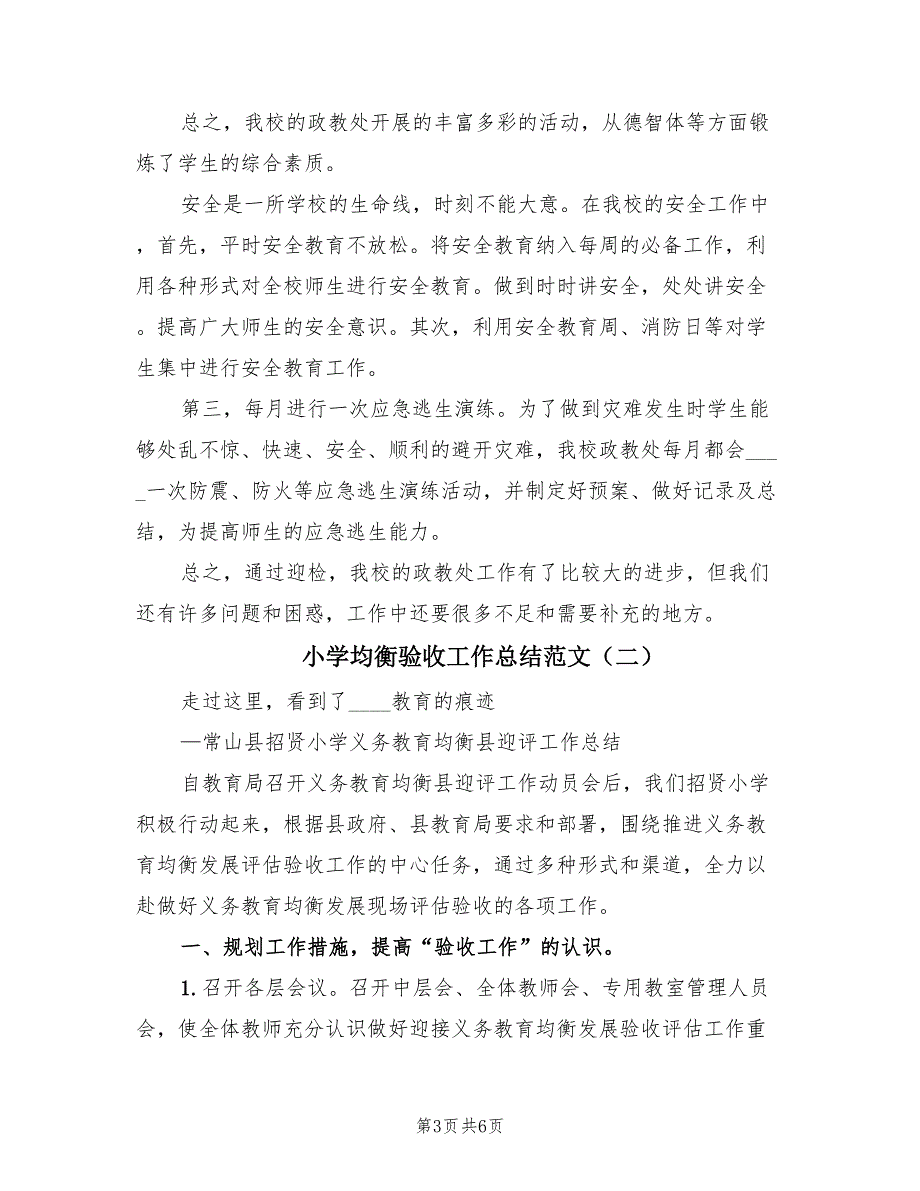 总之，我校的政教处开展的丰富多彩的活动，从德智体等方面锻
炼了学生的综合素质。
安全是一所学校的生命线，时刻不能大意。在我校的安全工作中
，首先，平时安全教育不放松。将安全教育纳入每周的必备工作，利
用各种形式对全校师生进行安全教育。做到时时讲安全，处处讲安全
。提高广大师生的安全意识。其次，利用安全教育周、消防日等对学
生集中进行安全教育工作。
第三，每月进行一次应急逃生演练。为了做到灾难发生时学生能
够处乱不惊、快速、安全、顺利的避开灾难，我校政教处每月都会___
_一次防震、防火等应急逃生演练活动，并制定好预案、做好记录及总
结，为提高师生的应急逃生能力。
总之，通过迎检，我校的政教处工作有了比较大的进步，但我们
还有许多问题和困惑，工作中还要很多不足和需要补充的地方。
小学均衡验收工作总结范文（二）
走过这里，看到了____教育的痕迹
—常山县招贤小学义务教育均衡县迎评工作总结
自教育局召开义务教育均衡县迎评工作动员会后，我们招贤小学
积极行动起来，根据县政府、县教育局要求和部署，围绕推进义务教
育均衡发展评估验收工作的中心任务，通过多种形式和渠道，全力以
赴做好义务教育均衡发展现场评估验收的各项工作。
一、规划工作措施，提高“验收工作”的认识。
1.召开各层会议。召开中层会、全体教师会、专用教室管理人员
会，使全体教师充分认识做好迎接义务教育均衡发展验收评估工作重
第3页 共6页